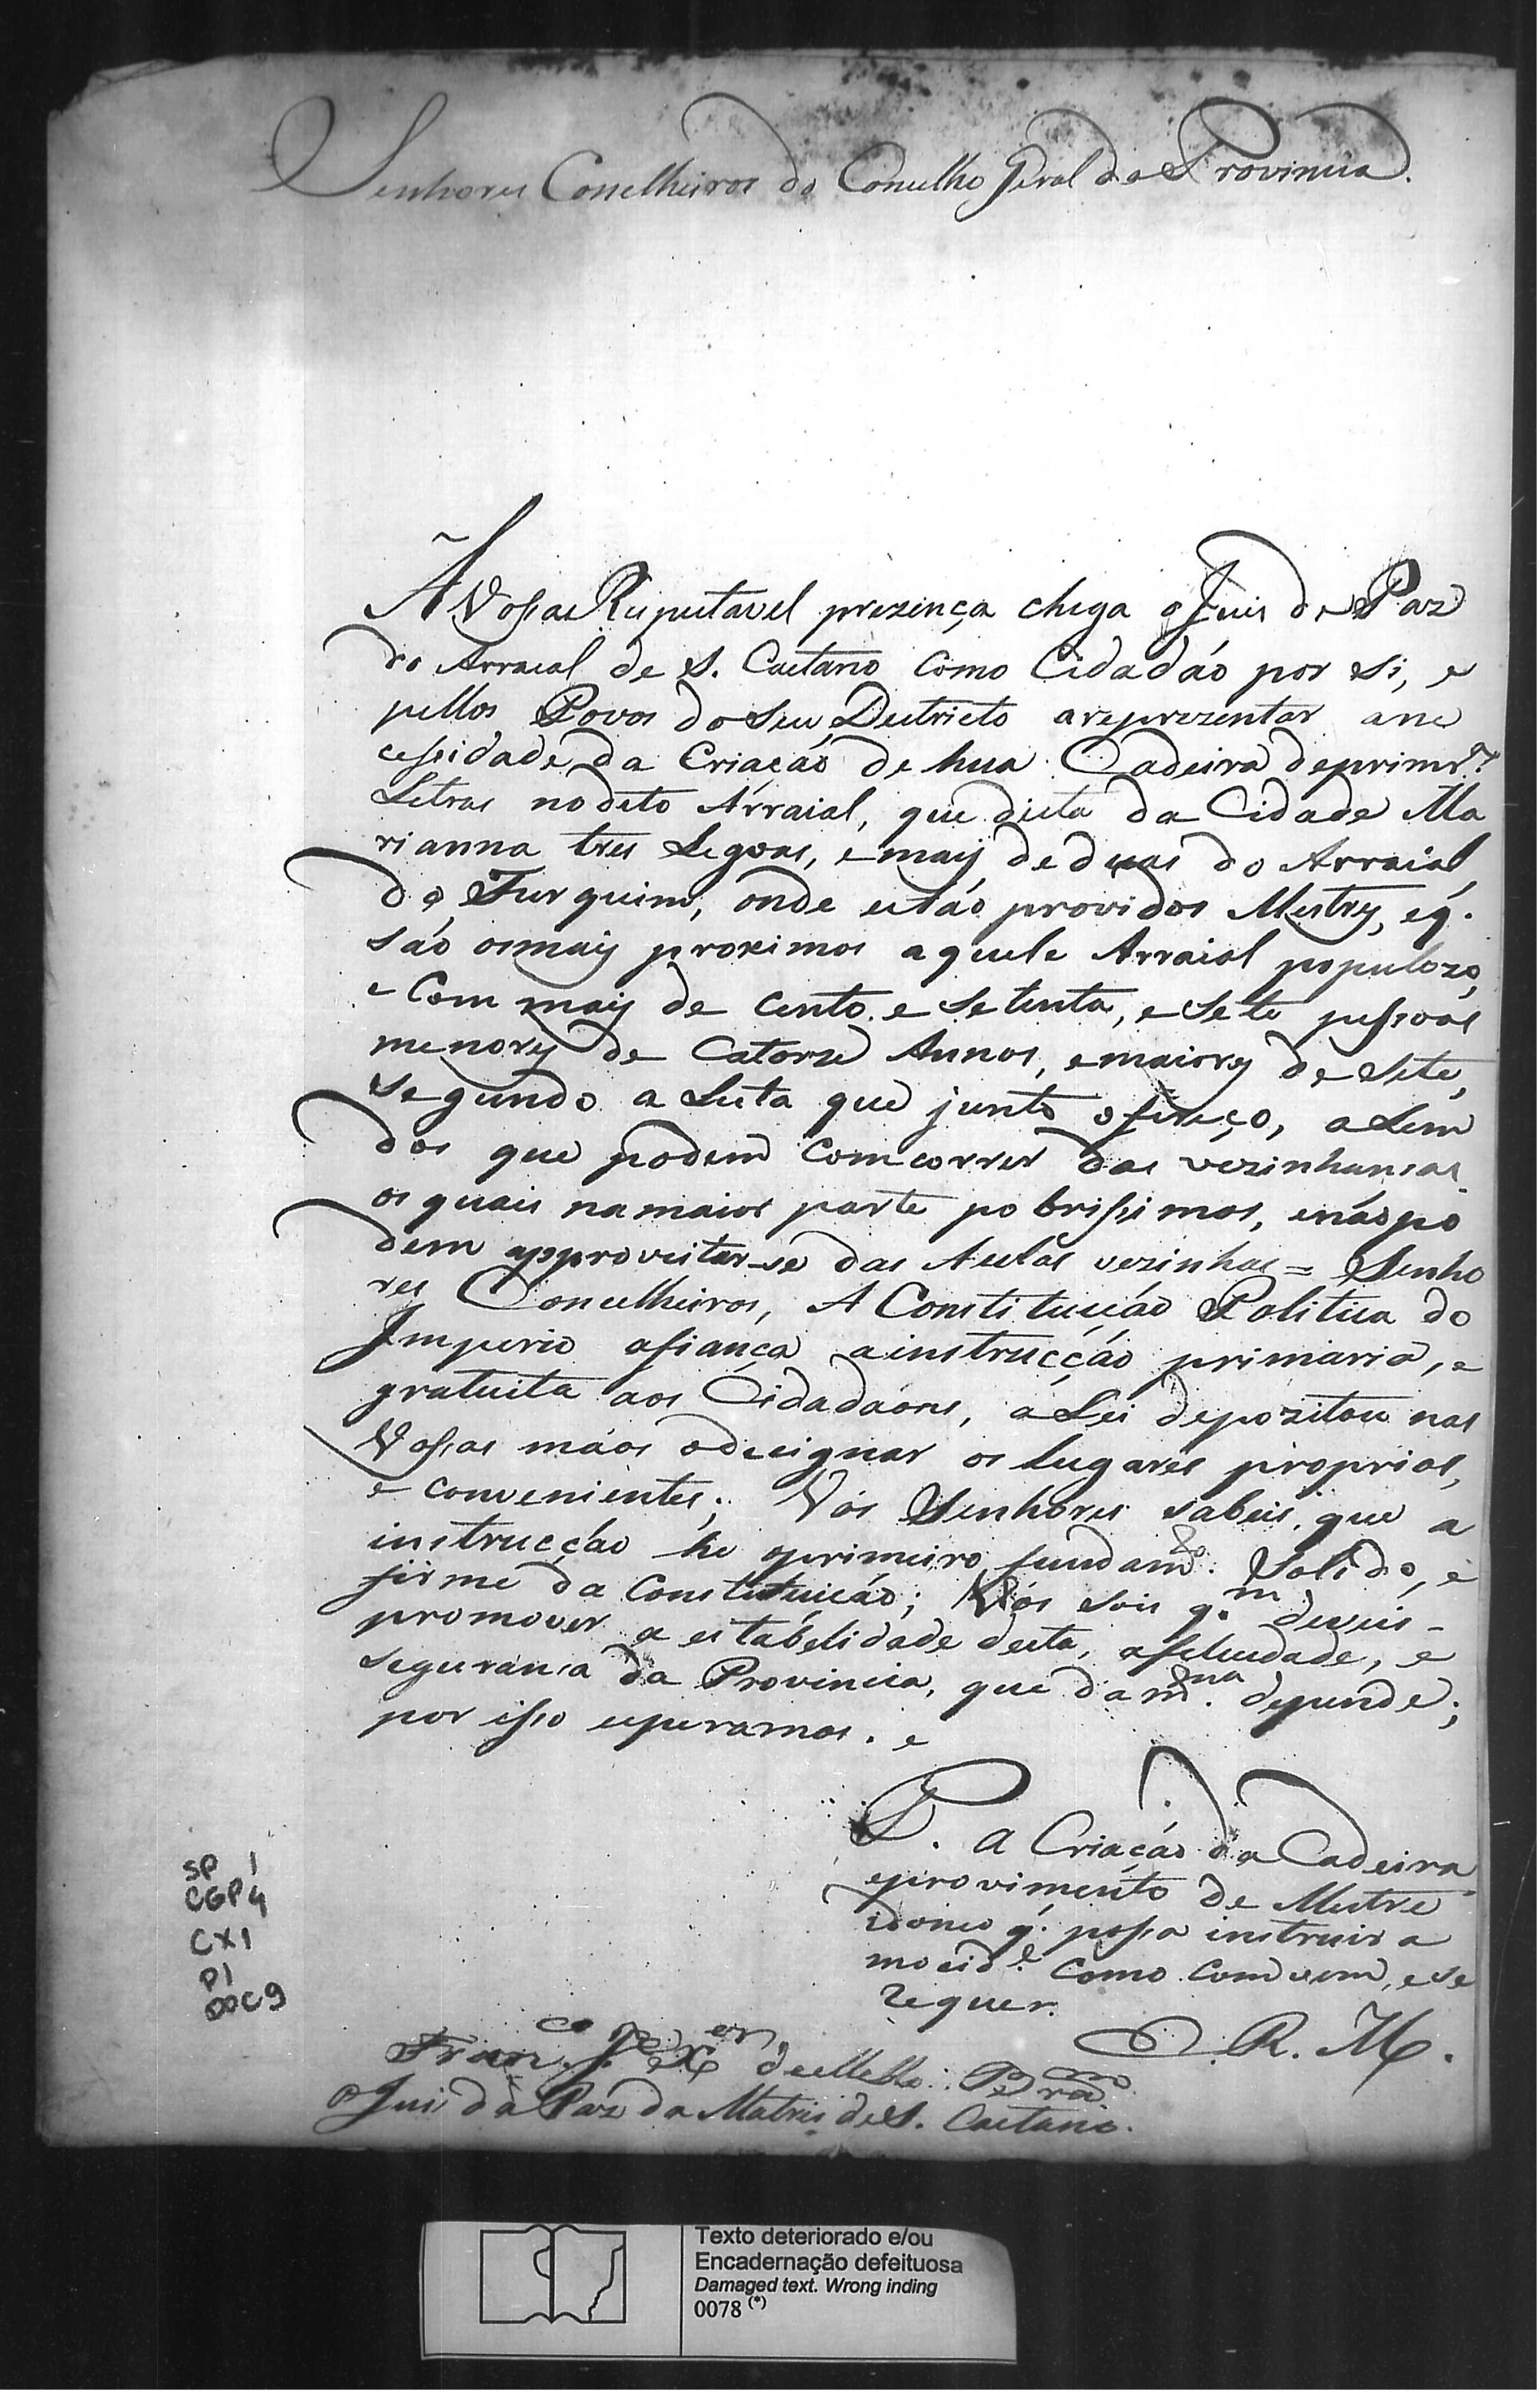 Senhores Conselheiros do Conselho Geral da Provincia.
A Vossa Respeitavel prezença chega o Juis de Paz
do Arraial de S. Caetano como Cidadáo por si, e
pellos Povos do Seu Destricto areprezentar ane
cessidade da Criaçáo de hua Cadeira deprimr.as
Letras nodito Arraial, que dista da Cidade Ma
rianna tres Legoas, emais de duas do Arraial
do Furquim, onde estáo providos Mestres, eq.
sáo osmais proximos aquele Arraial populozo,
e Com mais de Cento. e Setenta, e Sete pessoas
menores de Catorze Annos, emaiores de Sete,
Segundo a Lista que junto ofereço, alem
dos que podem comcorrer das vezinhansas
os quais namaior parte pobrissimos, enáo po
dem approveitar-se das Aulas vezinhas = Senho
res Concelheiros, A Constituiçáo Politica do
Imperio afiança ainstrucçáo primaria, e
gratuita aos Cidadáons, a Lei depozitou nas
Vossas máos odesignar os lugares proprios,
e convenientes; Vós Senhores sabeis que a
instrucçáo he oprimeiro fundam.to Solido, e
firme da Constituicáo; Vós sois q.m deveis -
promover a estabelidade desta, afelicidade, e
seguransa da Provincia, que da m.ma depende;
por isso esperamos. e
P. a Criaçáo da Cadeira
eprovimento de Mestre
idoneo q. possa instruir a
mocid.e como comvem, e se
requer.
E. R. M.
Fran.co J.e X.er de Mello
O Juis da Paz da Matris de S. Caetano.
SP 1
CGP4
CX1
P1
DOC9
Texto deteriorado e/ou
Encadernação defeituosa
Damaged text. Wrong inding
0078 (*)